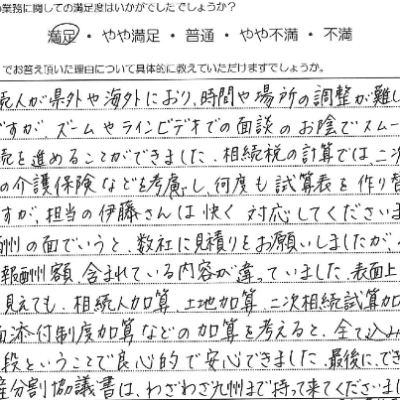 の業務に関しての満足度はいかがでしたでしょうか？
満足 ・ やや満足 ・ 普通 ・ やや不満 ・ 不満
でお答え頂いた理由について具体的に教えていただけますでしょうか。
続人が県外や海外におり、時間や場所の調整が難し
ですが、ズームやラインビデオでの面談のお陰でスムー
続を進めることができました。相続税の計算では二次
の介護保険などを考慮し、何度も試算表を作り替
すが、担当の伊藤さんは快く対応してくださいま
酬の面でいうと、数社に見積りをお願いしましたが、
報酬額、含まれている内容が違っていました。表面上
見えても、相続人加算、土地加算、二次相続試算加
面添付制度加算などの加算を考えると、全て込み
段ということで良心的で安心できました。最後に、でき
産分割協議書は、わざわざ九州まで持って来てくださいま